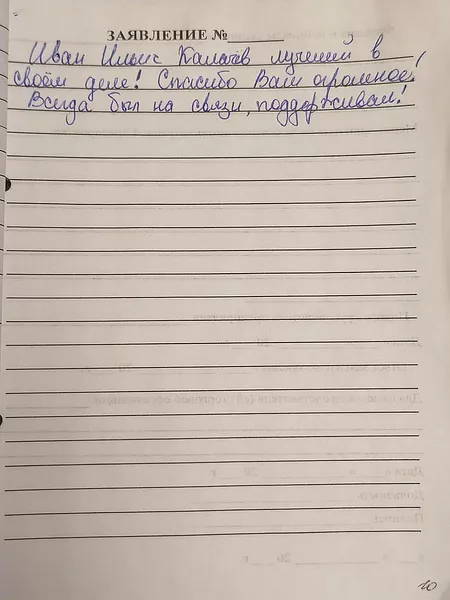 ЗАЯВЛЕНИЕ № ______
Иван Ильич Калачёв лучший в
своём деле! Спасибо Вам огромное!
Всегда был на связи, поддерживал!
10